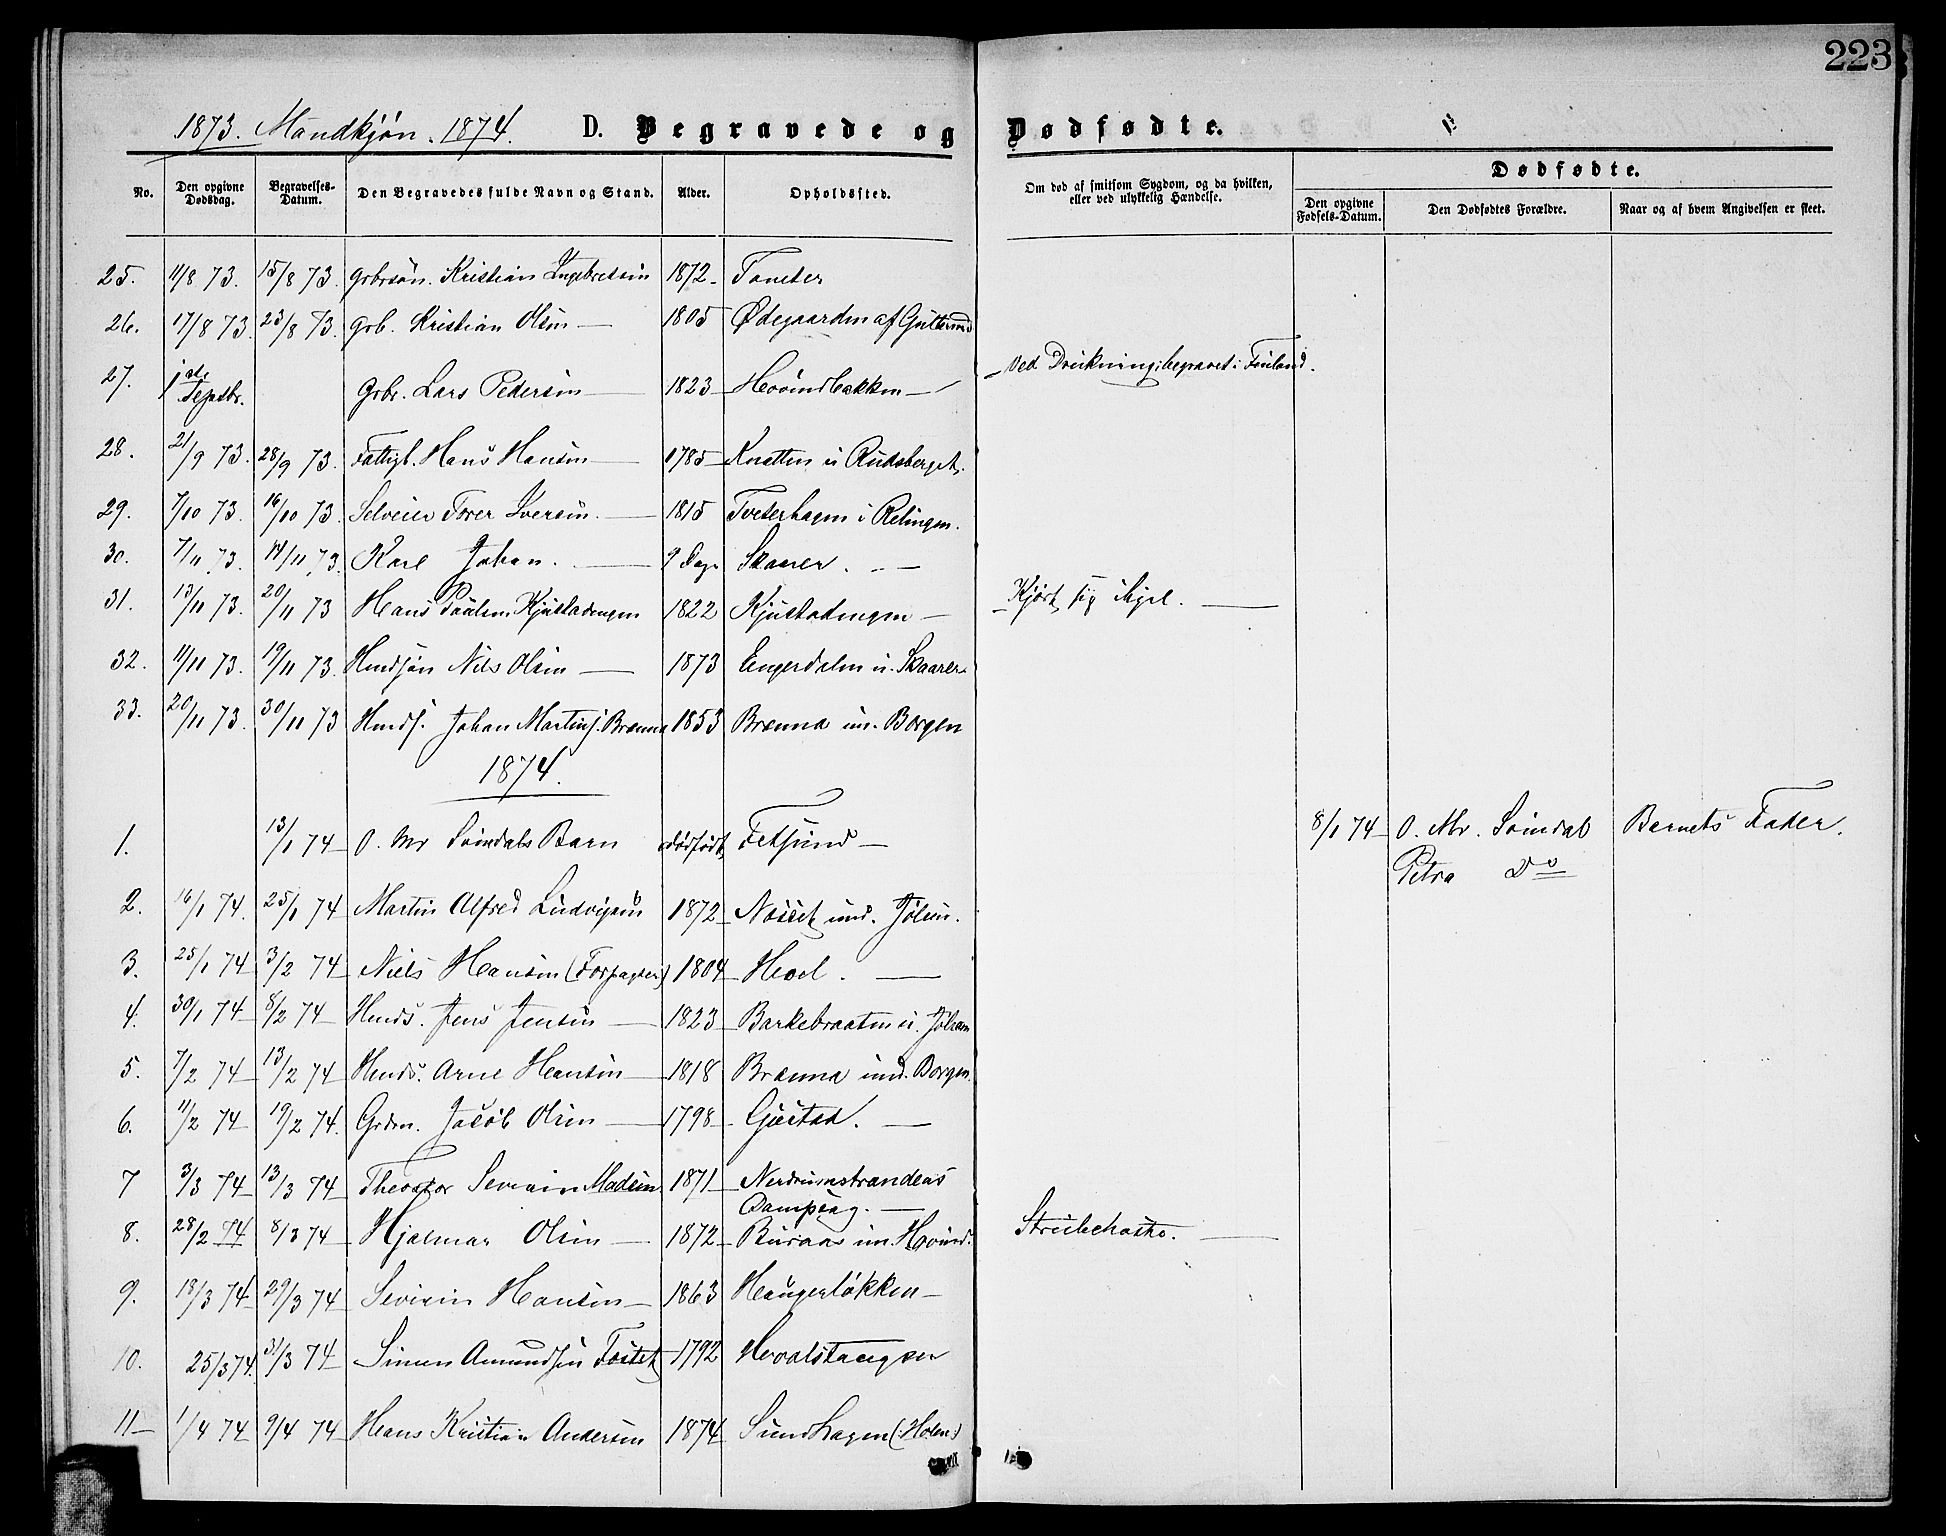 223
1873. Mandkjøn. 1874. D. Begravede og Dødfødte.
No. Den opgivne Dødsdag. Begravelses-Datum. Den Begravedes fulde Navn og Stand. Alder. Opholdssted. Om død af smitsom Sygdom, og da hvilken, eller ved ulykkelig Hændelse. Dødfødte.
Den opgivne Fødsels-Datum. Den Dødfødtes Forældre. Naar og af hvem Angivelsen er skeet.
25. 11/8 73. 15/8 73. Grbrsøn. Kristian Ingebretsen 1872 - Faneter
26. 17/8 73. 23/8 73. Grb. Kristian Olsen — 1805 Ødegaarden af
27. 1ste Septbr. Grbr. Lars Pedersen — 1823 - Hovindbakken — Ved Drukning; begravet i Finland.
28. 21/9 73. 28/9 73. Fattigl. Hans Hansen — 1785 - Knatten u Rudsberget.
29. 7/10 73. 16/10 73. Selveier Torer Iversen. — 1815 Tveterhagen i Relingen.
30. 7/11 73. 14/11 73. Karl Johan. — 9 Dage Skaarer. —
31. 13/11 73. 20/11 73 Hans Paulsen Kjustadengen 1822 Kjustadengen — Kjørt sig ihjel. —
32. 11/11 73. 19/11 73. Husmdsøn Nils Olsen — 1873 Engerdalen u. Skaarer
33. 20/11 73. 30/11 73 Husmds. Johan Martins. Brænna 1853 Brænna un. Borgen
1874.
1. 13/1 74 - O. Mr Sørndals Barn dødfødt Fetsund — 8/1 74 - O. Mr. Sørndal Barnets Fader.
Petra Do
2. 16/1 74. 25/1 74 Martin Alfred Ludvigsen 1872 - und. Jølsen.
3. 25/1 74 3/2 74 - Niels Hansen (Forpagter) 1804 - Hval. —
4. 30/1 74 - 8/2 74 - Husmds. Jens Jensen — 1823 - Barkebraaten u. Jølsen
5. 7/2 74 - 13/2 74 Husmds. Arne Hansen — 1818 Brænna und. Borgen.
6. 11/2 74 - 19/2 74. Grdm. Jacob Olsen — 1798 - Gjestad. —
7 3/3 74 - 13/3 74 - Theodor Severin Madsen 1871 - Nerdrumstrandens
Dampsag. —
8. 28/2 74 8/3 74 - Hjalmar Olsen — 1872 - Buraas un. Hovind. Strubehoste. —
9. 18/3 74 - 29/3 74 - Severin Hansen — 1863 Haugerløkken —
10. 25/3 74. 31/3 74 - Simen Amundsen Tøitet - 1792 Hvalstangen
11 — 1/4 74 9/4 74 - Hans Kristian Andersen 1874 Sundhagen (Holen)